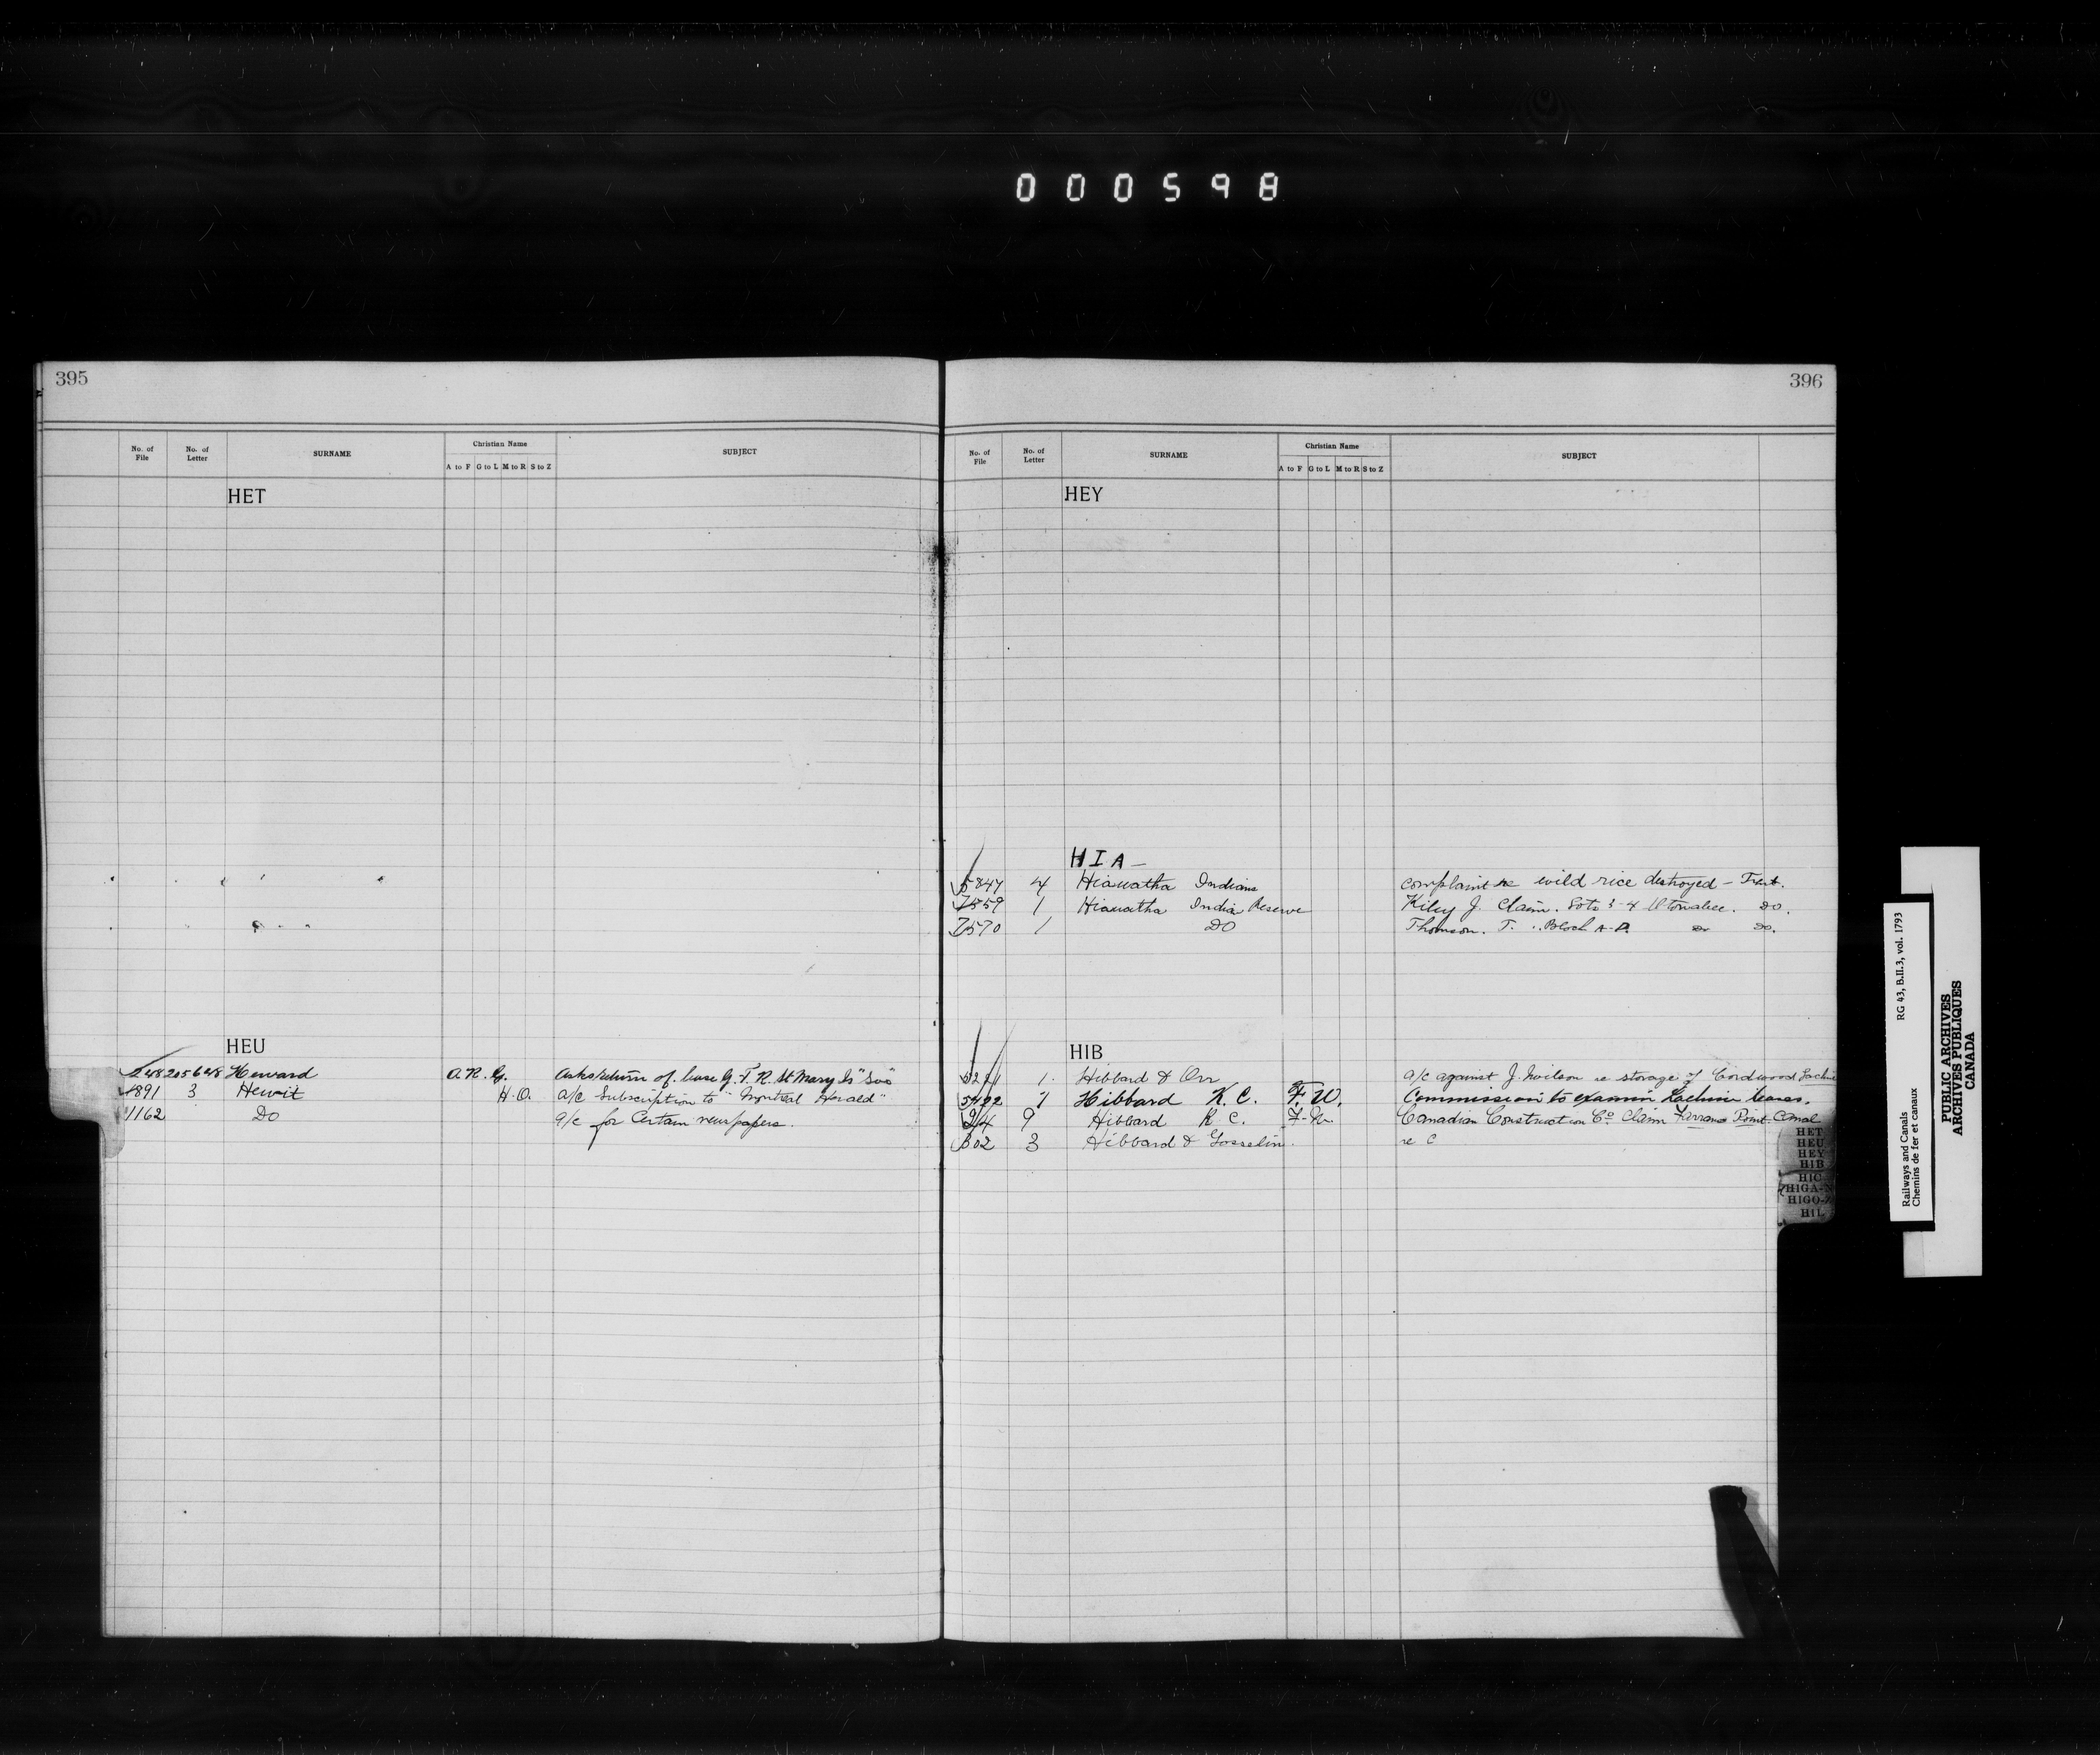 000598
395
No. of File No. of Letter SURNAME Christian Name SUBJECT
A to F G to L M to R S to Z
HET
HEU
248 205648 Heward A. R. G. Asks return of lease G. T. R. St Mary Is "Soo"
1891 3 Hewit H. O. a/c Subscription to "Montreal Herald"
11162 DO a/c for Certain newspapers.
396
No. of File No. of Letter SURNAME Christian Name SUBJECT
A to F G to L M to R S to Z
HEY
HIA
5847 4 Hiawatha Indians complaint re wild rice destroyed - Trent.
7559 1 Hiawatha India Reserve Kiley J. Claim. Lots 3-4 DO.
7570 1 DO Thomson. T. " Block A-D. Do DO.
HIB
1. Hibbard & Orr a/c against J. Wilson re storage of Cordwood Lachine
5492 1 Hibbard K. C. F. W. Commission to examin Lachine leases.
9 Hibbard K. C. F. W. Canadian Construction Co Claim Farrans Point Canal
302 3 Hibbard & Gosselin. re C
HET
HEU
HEY
HIB
HIC
HIGA-N
HIGO-Z
HIL
Railways and Canals RG 43, B.II.3, vol. 1793
Chemins de fer et canaux
PUBLIC ARCHIVES
ARCHIVES PUBLIQUES
CANADA